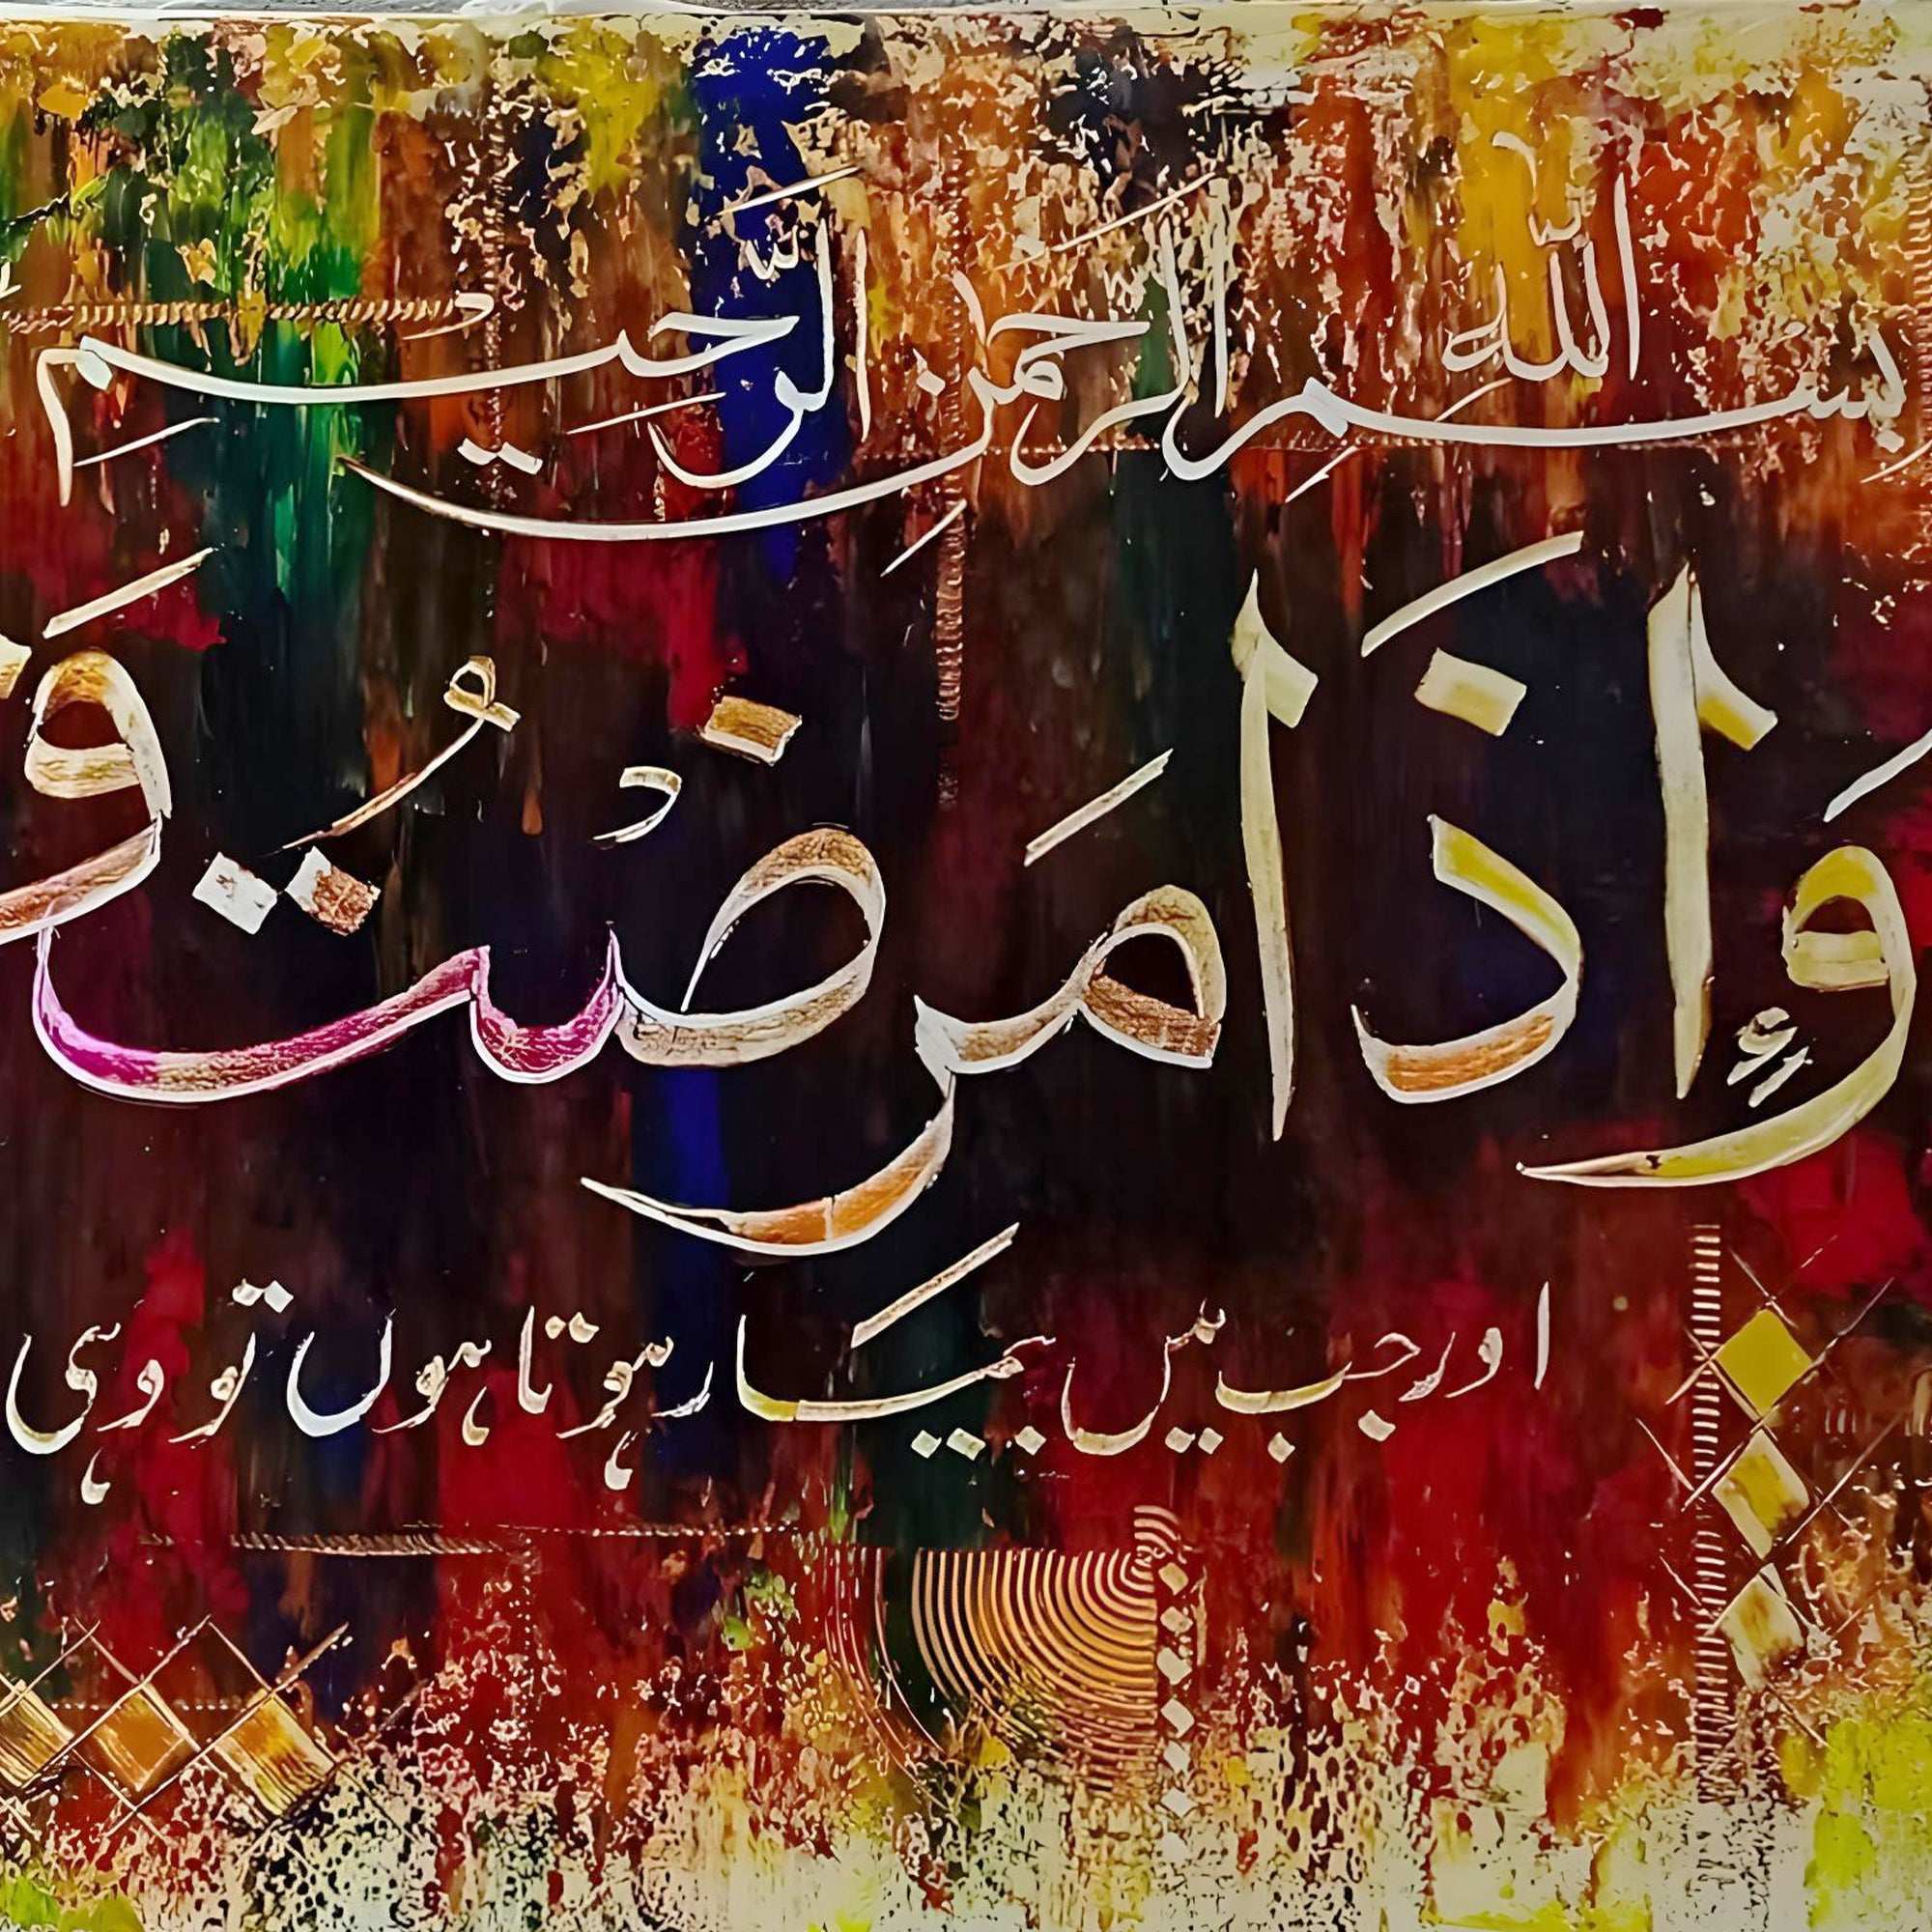 بِسْمِ اللّٰهِ الرَّحْمٰنِ الرَّحِيْمِ
وَإِذَا مَرِضْتُ فَ
اور جب میں بیمار ہوتا ہوں تو وہی